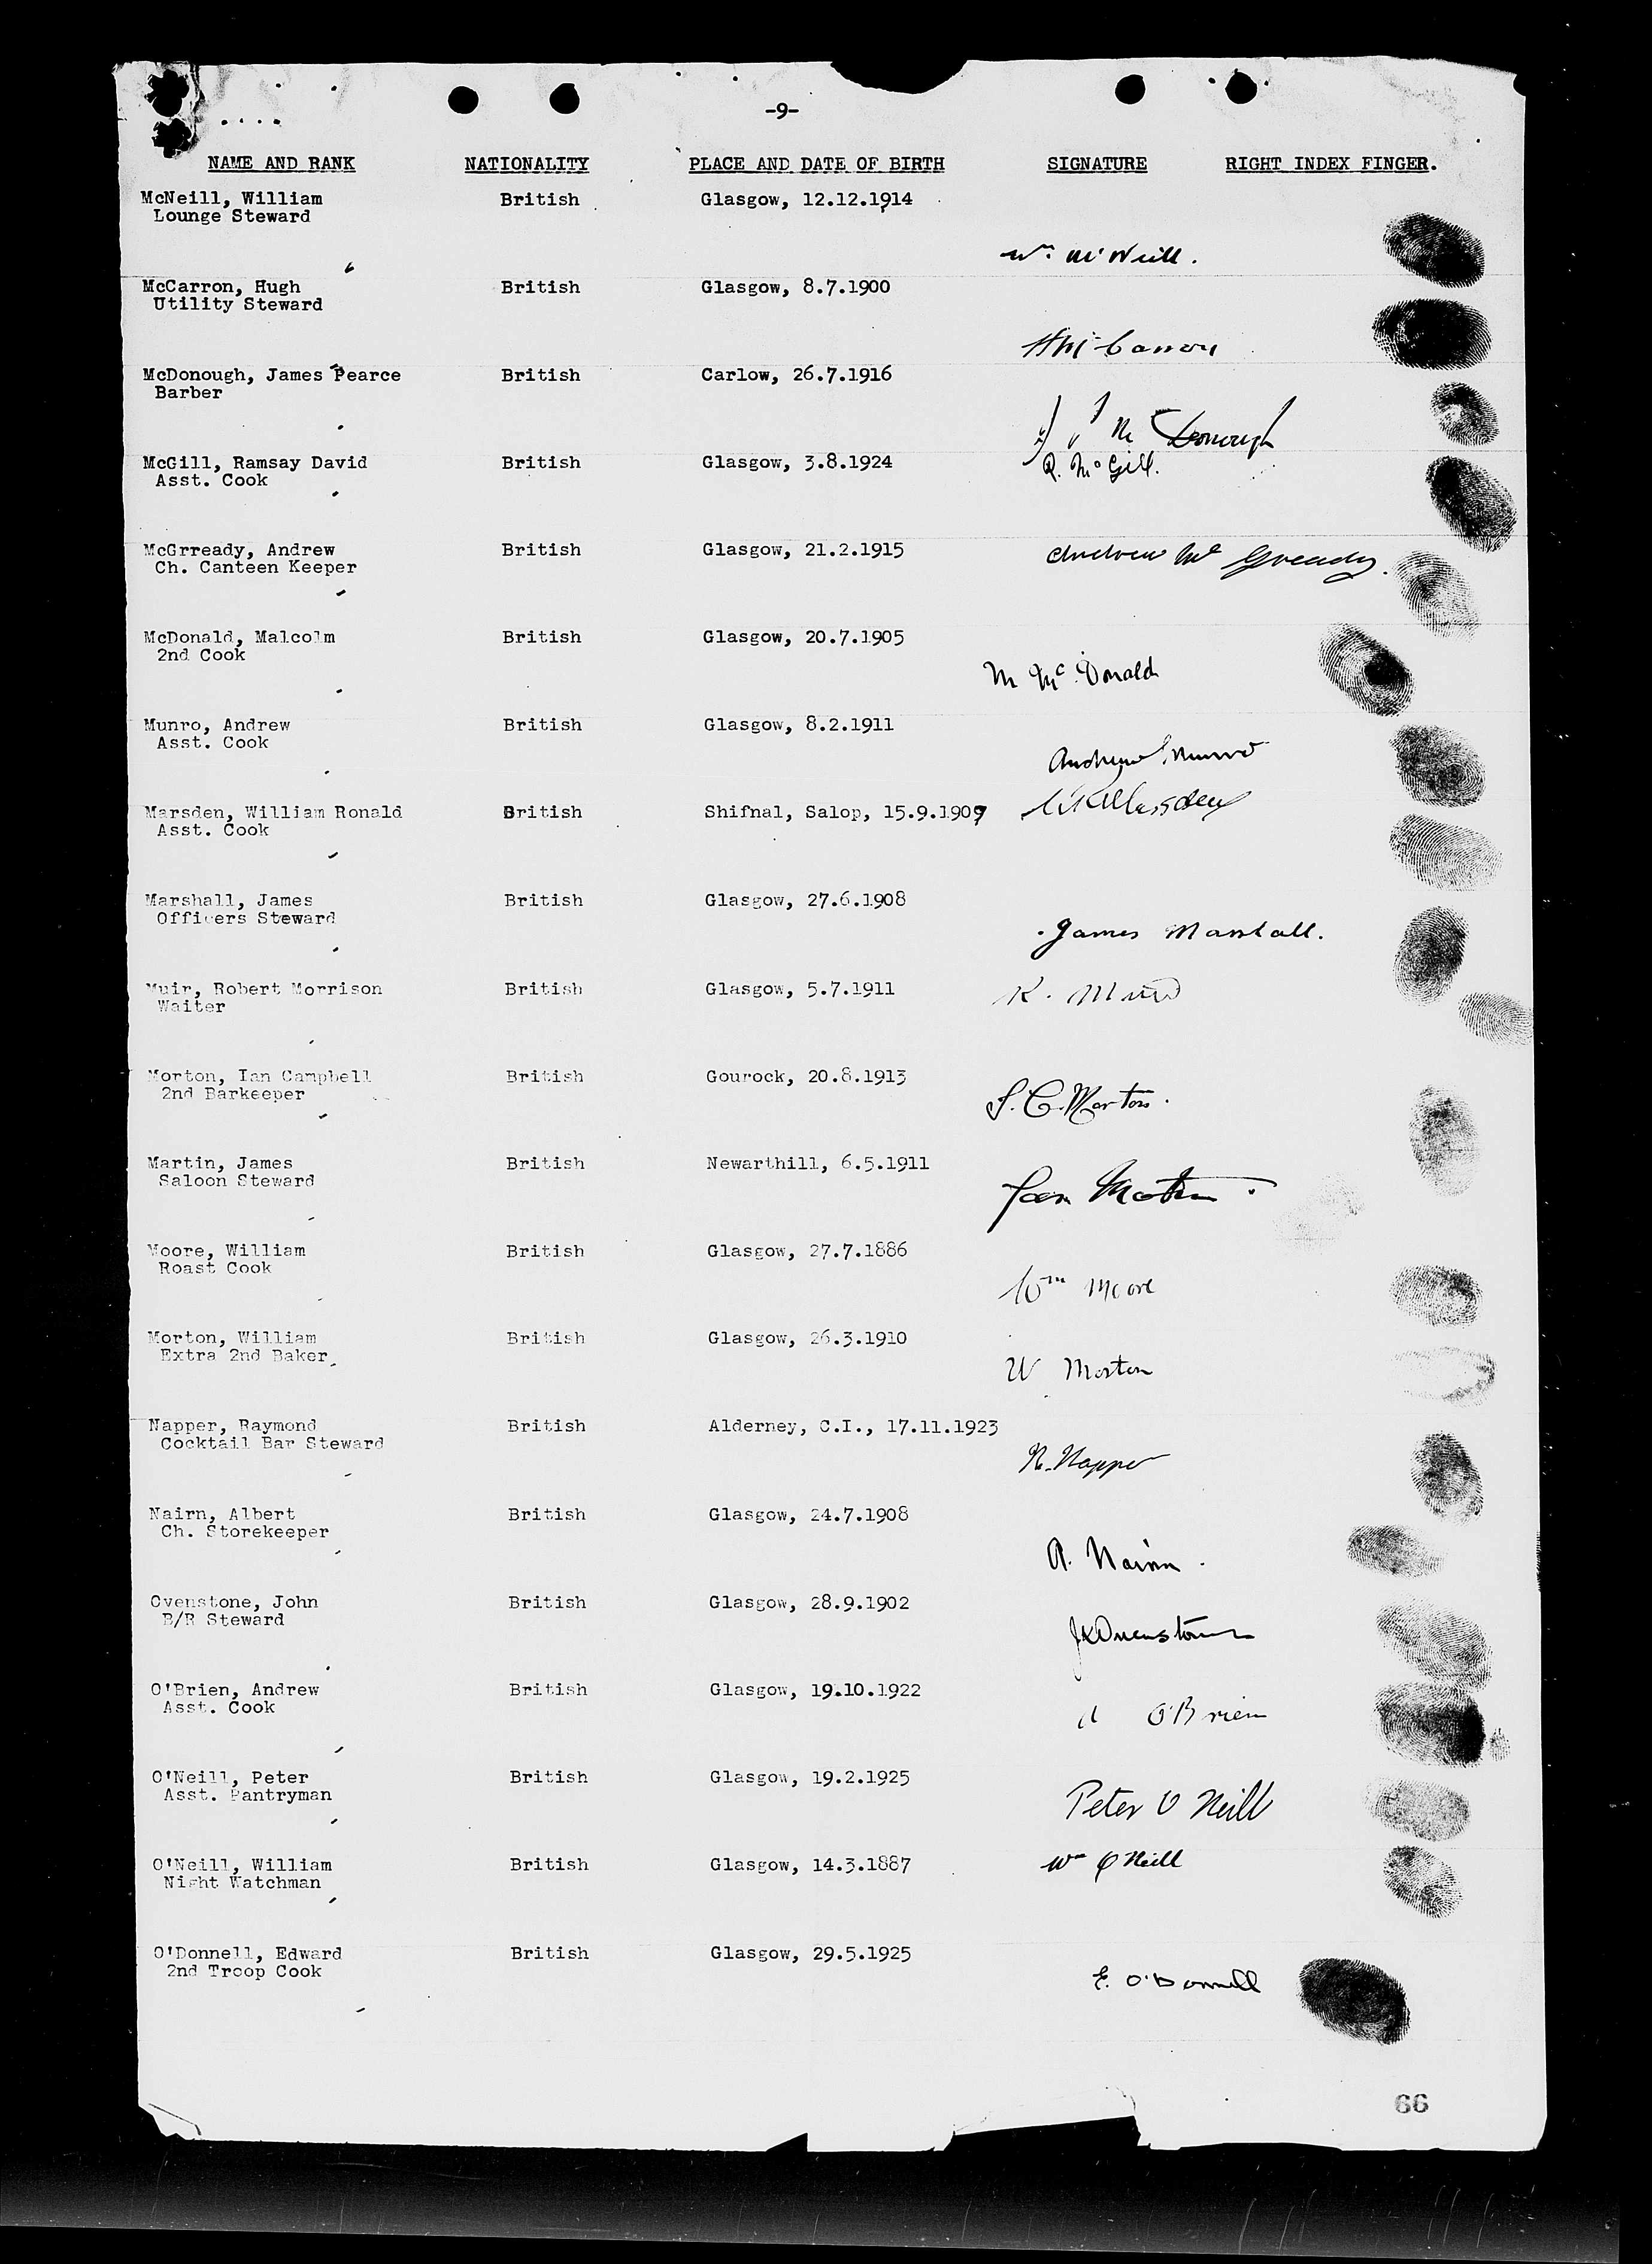 -9-
NAME AND RANK NATIONALITY PLACE AND DATE OF BIRTH SIGNATURE RIGHT INDEX FINGER.
McNeill, William British Glasgow, 12.12.1914
Lounge Steward
Wm. McNeill.
McCarron, Hugh British Glasgow, 8.7.1900
Utility Steward
H McCarron
McDonough, James Pearce British Carlow, 26.7.1916
Barber
Mc Donough
McGill, Ramsay David British Glasgow, 3.8.1924
R. McGill.
Asst. Cook
McGrready, Andrew British Glasgow, 21.2.1915 Andrew Mc Gready.
Ch. Canteen Keeper
McDonald, Malcolm British Glasgow, 20.7.1905
2nd Cook
M McDonald
Munro, Andrew British Glasgow, 8.2.1911
Asst. Cook
Andrew Munro
Marsden, William Ronald British Shifnal, Salop, 15.9.1909 W R Marsden
Asst. Cook
Marshall, James British Glasgow, 27.6.1908
Officers Steward
James Marshall.
Muir, Robert Morrison British Glasgow, 5.7.1911 R. Muir
Waiter
Morton, Ian Campbell British Gourock, 20.8.1913
2nd Barkeeper
I. C. Morton.
Martin, James British Newarthill, 6.5.1911
Saloon Steward
Jas Martin.
Moore, William British Glasgow, 27.7.1886
Roast Cook
Wm Moore
Morton, William British Glasgow, 26.3.1910
Extra 2nd Baker
W Morton
Napper, Raymond British Alderney, C.I., 17.11.1923
Cocktail Bar Steward
R. Napper
Nairn, Albert British Glasgow, 24.7.1908
Ch. Storekeeper
A. Nairn.
Ovenstone, John British Glasgow, 28.9.1902
B/R Steward
J K Ovenstone
O'Brien, Andrew British Glasgow, 19.10.1922
Asst. Cook
A O'Brien
O'Neill, Peter British Glasgow, 19.2.1925
Asst. Pantryman
Peter O Neill
O'Neill, William British Glasgow, 14.3.1887 Wm O'Neill
Night Watchman
O'Donnell, Edward British Glasgow, 29.5.1925
2nd Troop Cook
E. O'Donnell
66